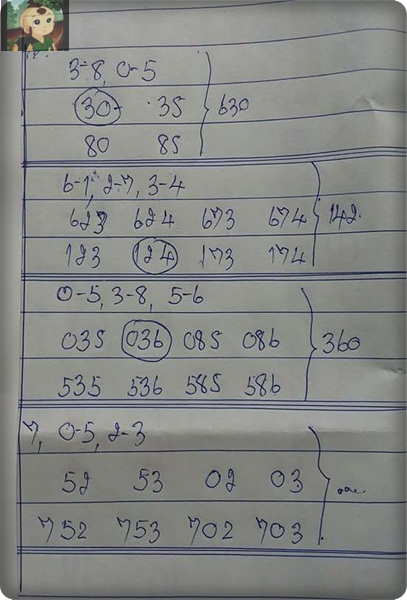 3-8, 0-5
30 35 630
80 85
6-1, 2-7, 3-4
623 624 673 674 142
123 124 173 174
0-5, 3-8, 5-6
035 036 085 086 360
535 536 585 586
7, 0-5, 2-3
52 53 02 03
752 753 702 703